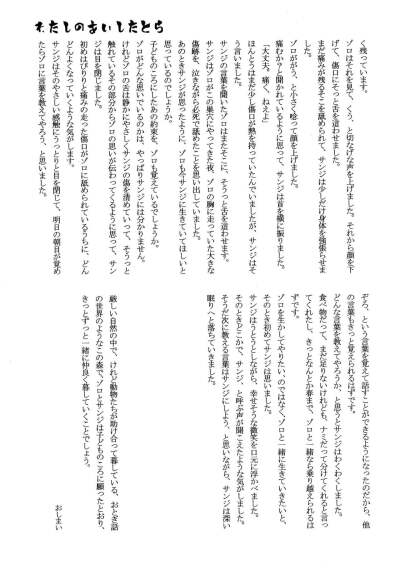 わたしのあいしたとら
く残っています。
ゾロはそれを見て、くう、と切なげな声を上げました。それから顔を下
げて、傷口にそっと舌を這わせました。
まだ痛みが残るそこを舐められて、サンジは少しだけ身体を強張らせま
す。
ゾロがぐう、と小さく唸って顔を上げました。
痛むか？と聞かれているように思って、サンジは首を横に振りました。
「大丈夫。痛く、ねえよ」
ほんとうはまだ少し傷口が熱を持っていたんでいましたが、サンジはそ
う言いました。
サンジの言葉を聞いたゾロはまたそこに、そうっと舌を這わせます。
サンジはゾロがこの巣穴にやってきた夜、ゾロの胸に走っていた大きな
傷跡を、泣きながら必死で舐めたことを思い出していました。
あのときサンジが思ったように、ゾロも今サンジに生きていてほしいと
思っているのでしょうか。
子どものころにしたあの約束を、ゾロも覚えているでしょうか。
ゾロがどんな思いでいるのかは、やっぱりサンジには分かりません。
けれどゾロの舌は静かにやさしくサンジの傷を清めていって、そうっと
触れているその部分からゾロの思いが伝わってくるように思って、サン
ジは目を閉じました。
初めはぴりりと痛みの走った傷口がゾロに舐められているうちに、どん
どんよくなっていくような気がします。
サンジはそのやさしい感触にうっとりと目を閉じて、明日の朝目が覚め
たらゾロに言葉を教えてやろう、と思いました。
ぞろ、という言葉を覚えて話すことができるようになったのだから、他
の言葉もきっと覚えられるはずです。
どんな言葉を教えてやろうか、と思うとサンジはわくわくしました。
食べ物だって、まだ足りないけれども、ナミだって分けてくれると言っ
てくれたし、きっとなんとか春まで、ゾロと一緒なら乗り越えられるは
ずです。
ゾロを生かしてやりたい、のではなく、ゾロと一緒に生きていきたいと、
そのとき初めてサンジは思いました。
サンジはうとうとしながら、幸せそうな微笑を口元に浮かべました。
そのときどこかで、サンジ、と呼ぶ声が聞こえたような気がしました。
そうだ次に教える言葉はサンジにしよう、と思いながら、サンジは深い
眠りへと落ちていきました。
厳しい自然の中で、けれど動物たちが助け合って暮している、おとぎ話
の世界のようなこの森で、ゾロとサンジは子どものころに願ったとおり、
きっとずっと一緒に仲良く暮していくことでしょう。
おしまい